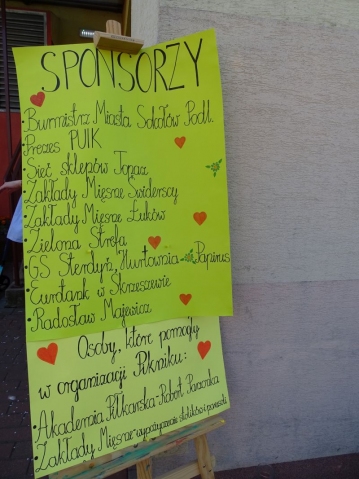 SPONSORZY
• Burmistrz Miasta Sokołów Podl.
• Prezes PUIK
• Sieć sklepów Topaz
• Zakłady Mięsne Świderscy
• Zakłady Mięsne Łuków
• Zielona Strefa
• GS Sterdyń, Hurtownia Papirus
• Eurotank w Skrzeszewie
• Radosław Majewicz
Osoby, które pomogły
w organizacji Pikniku:
• Akademia Piłkarska - Robert
• Zakłady Mięsne - wypożyczenie stolików i parasoli